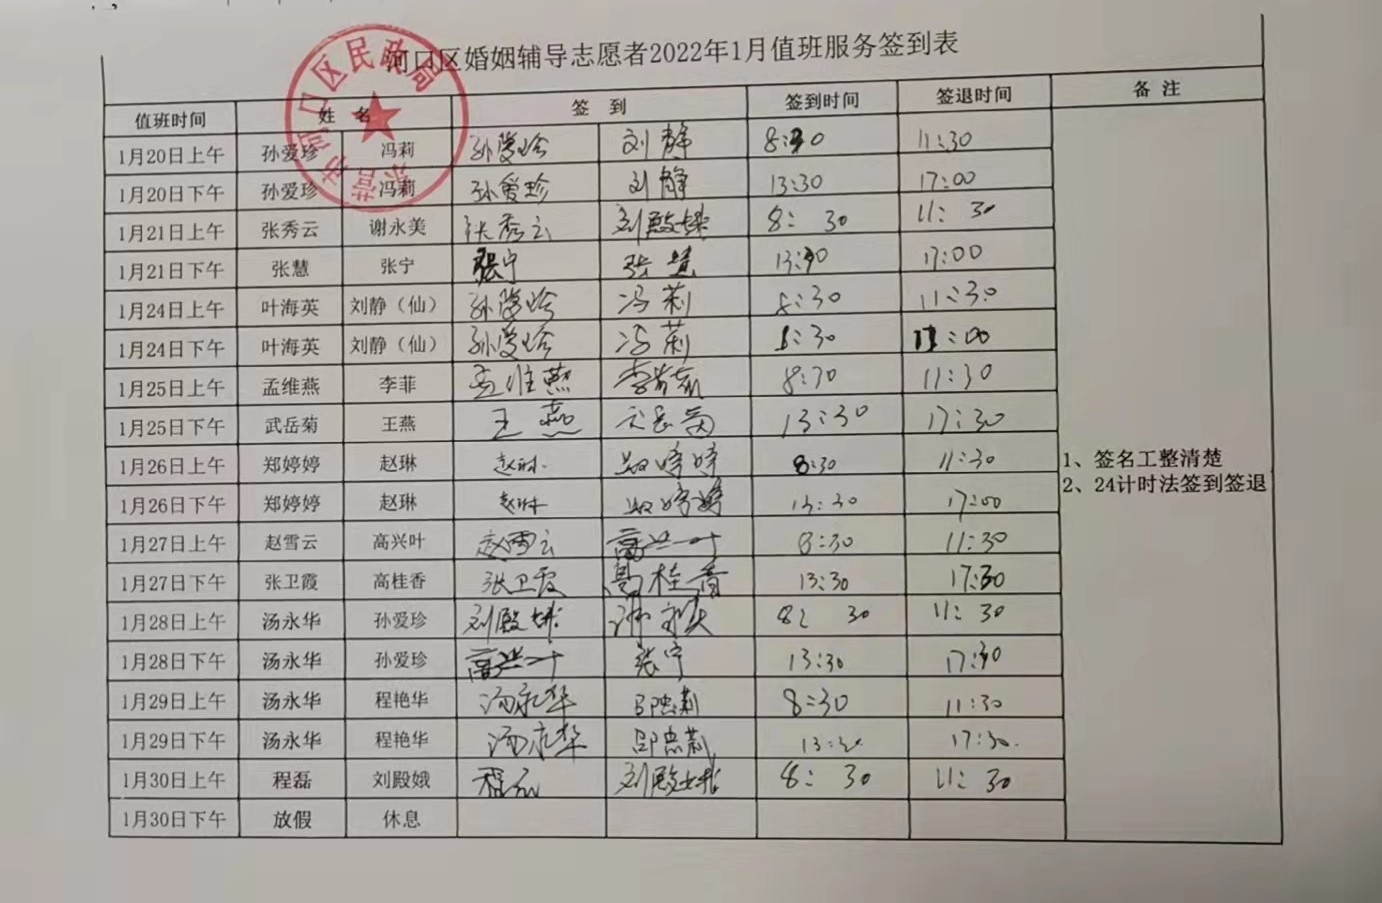 河口区婚姻辅导志愿者2022年1月值班服务签到表
值班时间 姓 名 签 到 签到时间 签退时间 备 注
1月20日上午 孙爱珍 冯莉 孙爱珍 刘静 8:30 11:30
1月20日下午 孙爱珍 冯莉 孙爱珍 刘静 13:30 17:00
1月21日上午 张秀云 谢永美 张秀云 刘殿娥 8: 30 11: 30
1月21日下午 张慧 张宁 张宁 张慧 13:30 17:00
1月24日上午 叶海英 刘静（仙） 孙爱珍 冯莉 8:30 11:30
1月24日下午 叶海英 刘静（仙） 孙爱珍 冯莉 1:30
1月25日上午 孟维燕 李菲 孟维燕 8:30 11:30
1月25日下午 武岳菊 王燕 王燕 13:30 17:30
1月26日上午 郑婷婷 赵琳 赵琳 郑婷婷 8:30 11:30
1月26日下午 郑婷婷 赵琳 赵琳 郑婷婷 13:30 17:00
1月27日上午 赵雪云 高兴叶 赵雪云 高兴叶 8:30 11:30
1月27日下午 张卫霞 高桂香 张卫霞 高桂香 13:30 17:30
1月28日上午 汤永华 孙爱珍 刘殿娥 谢永美 8: 30 11: 30
1月28日下午 汤永华 孙爱珍 高兴叶 张宁 13:30 17:30
1月29日上午 汤永华 程艳华 汤永华 8:30 11:30
1月29日下午 汤永华 程艳华 汤永华 13:30 17:30
1月30日上午 程磊 刘殿娥 程磊 刘殿娥 8: 30 11: 30
1月30日下午 放假 休息
1、签名工整清楚
2、24计时法签到签退
东营市河口区民政局